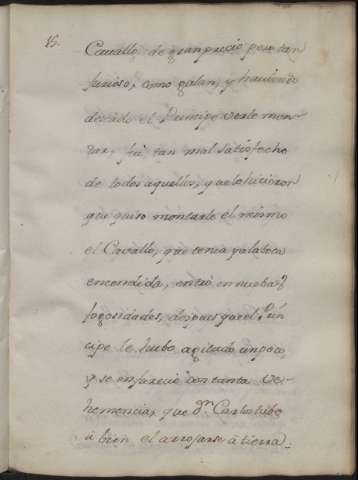 15.
Cavallo, de gran precio pero tan
furioso, como galan, y haviendo
deseado el Principe verle mon-
tar, fue tan mal satisfecho
de todos aquellos, que lo hicieron
que quiso montarle el mismo
el Cavallo, que tenia ya la boca
encendida, entró en nuebas
fogosidades, despues que el Prin
cipe le hubo agitado un poco,
y se enfureció con tanta ve-
hemencia, que Dn. Carlos tubo
á bien el arrojarse á tierra.